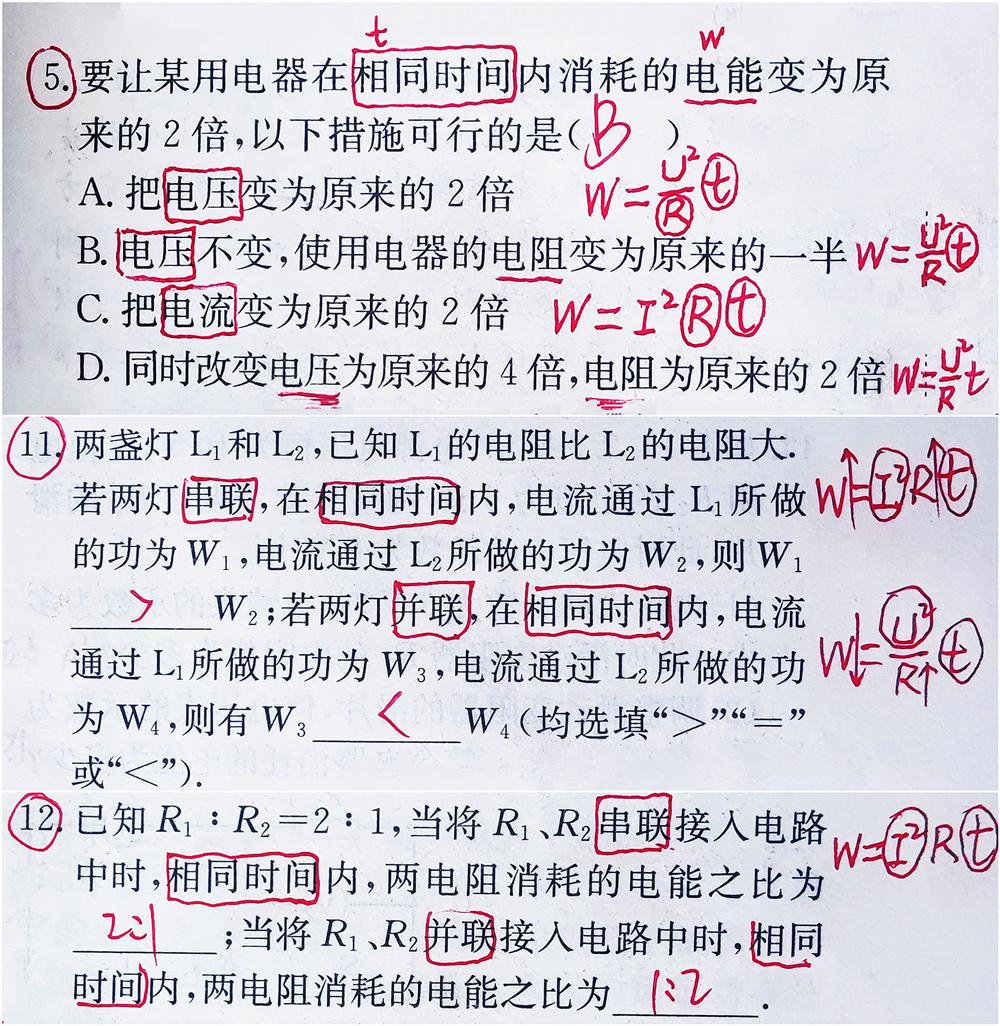 t w
5. 要让某用电器在相同时间内消耗的电能变为原
来的 2 倍,以下措施可行的是( B )
A. 把电压变为原来的 2 倍 W=U²/R t
B. 电压不变,使用电器的电阻变为原来的一半 W=U²/R t
C. 把电流变为原来的 2 倍 W=I²Rt
D. 同时改变电压为原来的 4 倍,电阻为原来的 2 倍 W=U²/R t
11. 两盏灯 L₁和 L₂,已知 L₁的电阻比 L₂的电阻大.
若两灯串联,在相同时间内,电流通过 L₁所做 W↑=I²R↑t
的功为 W₁,电流通过 L₂所做的功为 W₂,则 W₁
> W₂;若两灯并联,在相同时间内,电流
通过 L₁所做的功为 W₃,电流通过 L₂所做的功 W↓=U²/R↑ t
为 W₄,则有 W₃ < W₄(均选填“>”“=”
或“<”).
12. 已知 R₁∶R₂=2∶1,当将 R₁、R₂串联接入电路 W=I²Rt
中时,相同时间内,两电阻消耗的电能之比为
2:1 ;当将 R₁、R₂并联接入电路中时,相同
时间内,两电阻消耗的电能之比为 1:2 .